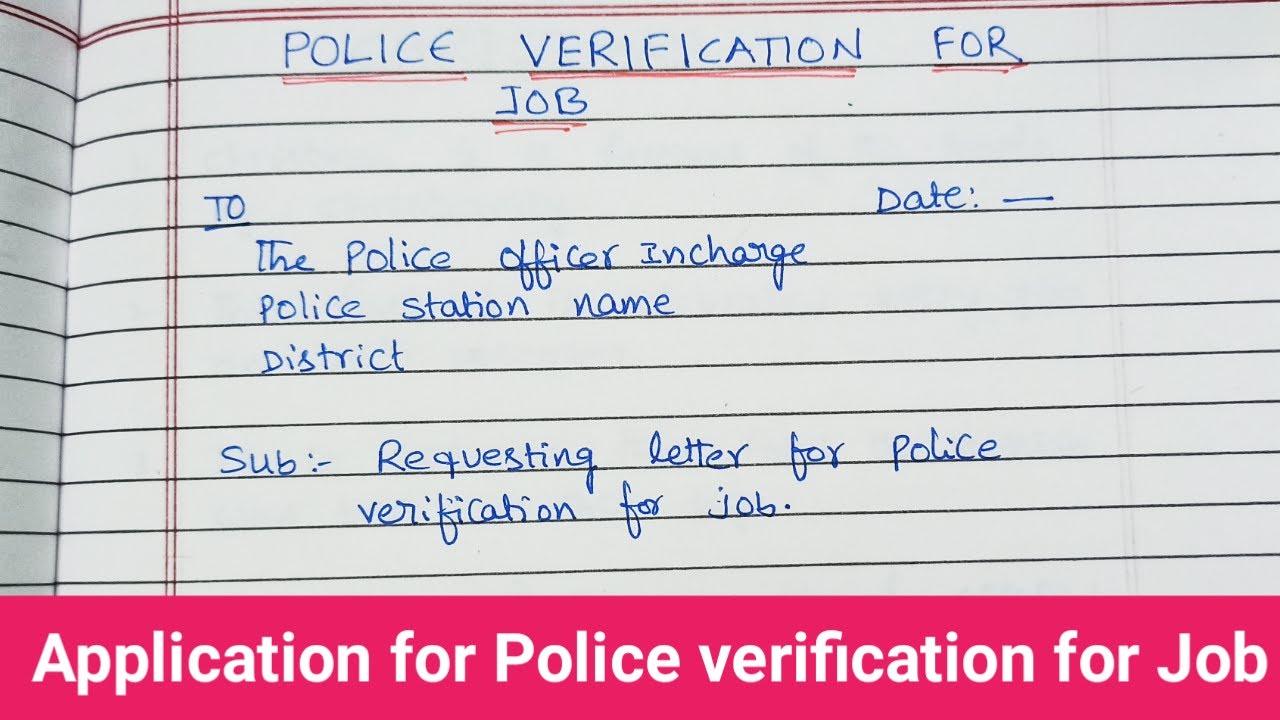 POLICE VERIFICATION FOR
JOB
TO
Date: —
The Police officer Incharge
Police station name
District
Sub:- Requesting letter for police
verification for job.
Application for Police verification for Job